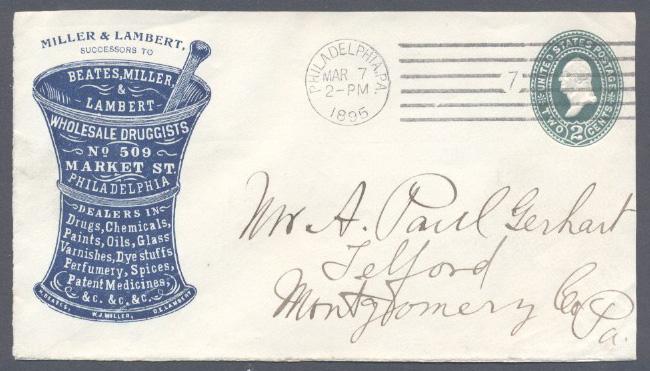 MILLER & LAMBERT,
SUCCESSORS TO
BEATES, MILLER,
&
LAMBERT
WHOLESALE DRUGGISTS
No 509
MARKET ST.
PHILADELPHIA
DEALERS IN
Drugs, Chemicals,
Paints, Oils, Glass
Varnishes, Dye stuffs
Perfumery, Spices,
Patent Medicines,
&c. &c. &c.
H. BEATES,
W.J. MILLER,
LAMBERT
PHILADELPHIA, PA.
MAR 7
2-PM
1895
7
UNITED STATES POSTAGE
TWO 2 CENTS
Mr A. Paul Gerhart
Telford
Montgomery Co
Pa.